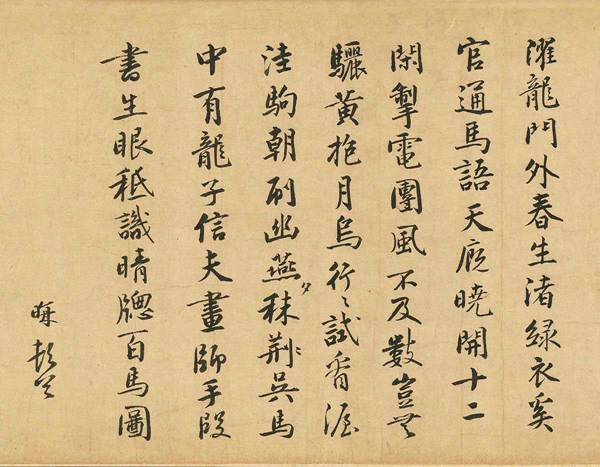 濯龍門外春生渚綠衣奚
官通馬語天廄曉開十二
閑掣電團風不及數豈无
驪黃抱月烏行〻試看渥
洼駒朝刷幽燕夕秣荆吳馬
中有龍子信夫畫師手段
書生眼秪識晴牕百馬圖